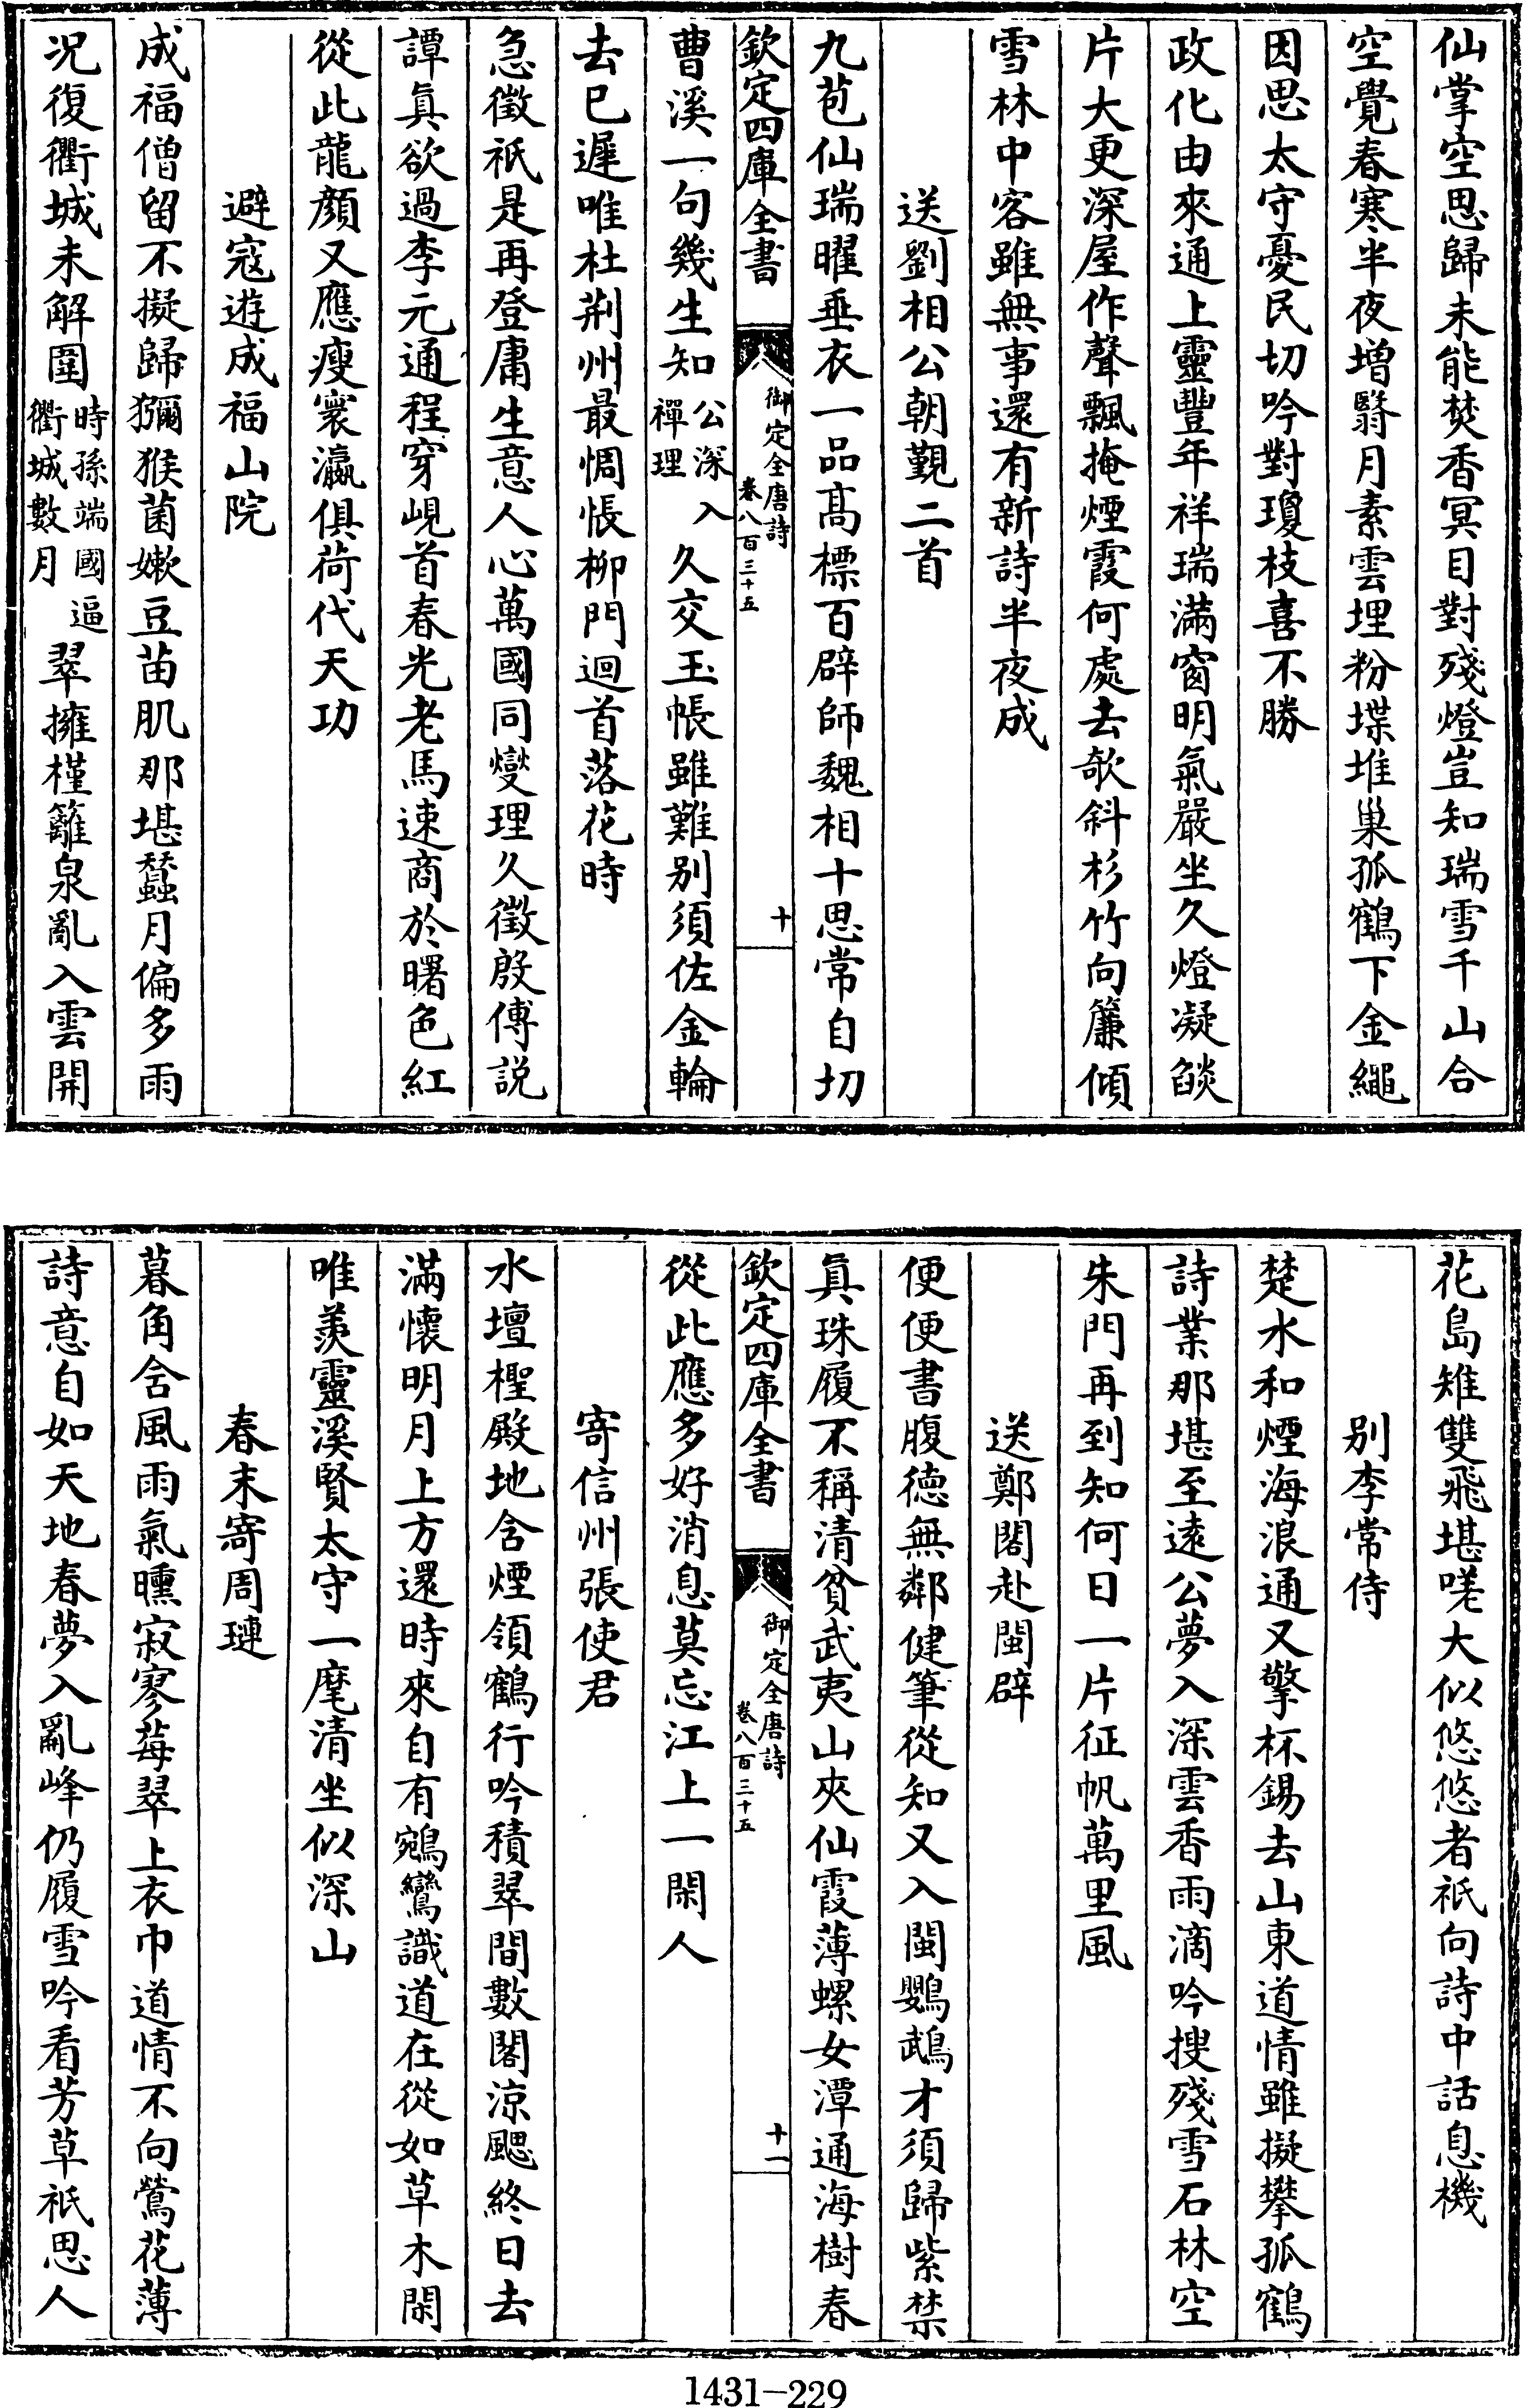 仙掌空思歸未能焚香冥目對殘燈豈知瑞雪千山合
空覺春寒半夜增翳月素雲埋粉堞堆巢孤鶴下金繩
因思太守憂民切吟對瓊枝喜不勝
政化由來通上靈豐年祥瑞滿窗明氣嚴坐久燈凝燄
片大更深屋作聲飄掩煙霞何處去欹斜杉竹向簾傾
雪林中客雖無事還有新詩半夜成
送劉相公朝覲二首
九苞仙瑞曜垂衣一品高標百辟師魏相十思常自切
欽定四庫全書
御定全唐詩
卷八百三十五
十
曹溪一句幾生知公深入禪理久交玉帳雖難別須佐金輪
去巳遲唯杜荆州最惆悵柳門迴首落花時
急徵祇是再登庸生意人心萬國同燮理久徵殷傅説
譚真欲過李元通程穿峴首春光老馬速商於曙色紅
從此龍顏又應瘦寰瀛俱荷代天功
避寇遊成福山院
成福僧留不擬歸獼猴菌嫰豆苗肌那堪蠶月偏多雨
况復衢城未解圍時孫端國逼衢城數月翠擁槿籬泉亂入雲開
花島雉雙飛堪嗟大似悠悠者祇向詩中話息機
別李常侍
楚水和煙海浪通又擎杯錫去山東道情雖擬攀孤鶴
詩業那堪至遠公夢入深雲香雨滴吟搜殘雪石林空
朱門再到知何日一片征帆萬里風
送鄭閣赴閩辟
便便書腹德無鄰健筆從知又入閩鸚鵡才須歸紫禁
真珠履不稱清貧武夷山夾仙霞薄螺女潭通海樹春
欽定四庫全書
御定全唐詩
卷八百三十五
十一
從此應多好消息莫忘江上一閑人
寄信州張使君
水壇檉殿地含煙領鶴行吟積翠間數閣涼颸終日去
滿懷明月上方還時來自有鵷鸞識道在從如草木閑
唯羨靈溪賢太守一麾清坐似深山
春末寄周璉
暮角含風雨氣曛寂寥莓翠上衣巾道情不向鶯花薄
詩意自如天地春夢入亂峰仍履雪吟看芳草祇思人
1431-229